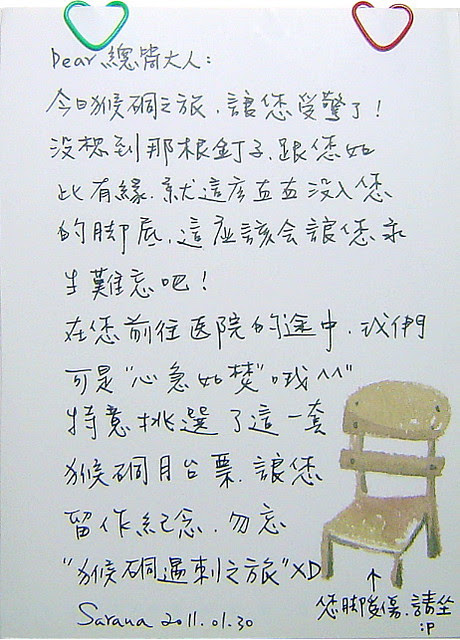 Dear 總督大人：
今日猴硐之旅，讓您受驚了！
没想到那根釘子，跟您如
此有緣，就這麼直直没入您
的脚底，這應該会讓您永
生難忘吧！
在您前往医院的途中，我們
可是“心急如焚”哦^^”
特意挑選了這一套
猴硐月台票，讓您
留作紀念，勿忘
“猴硐遇刺之旅”XD
↑
您脚受傷，請坐
:p
Sarana 2011.01.30